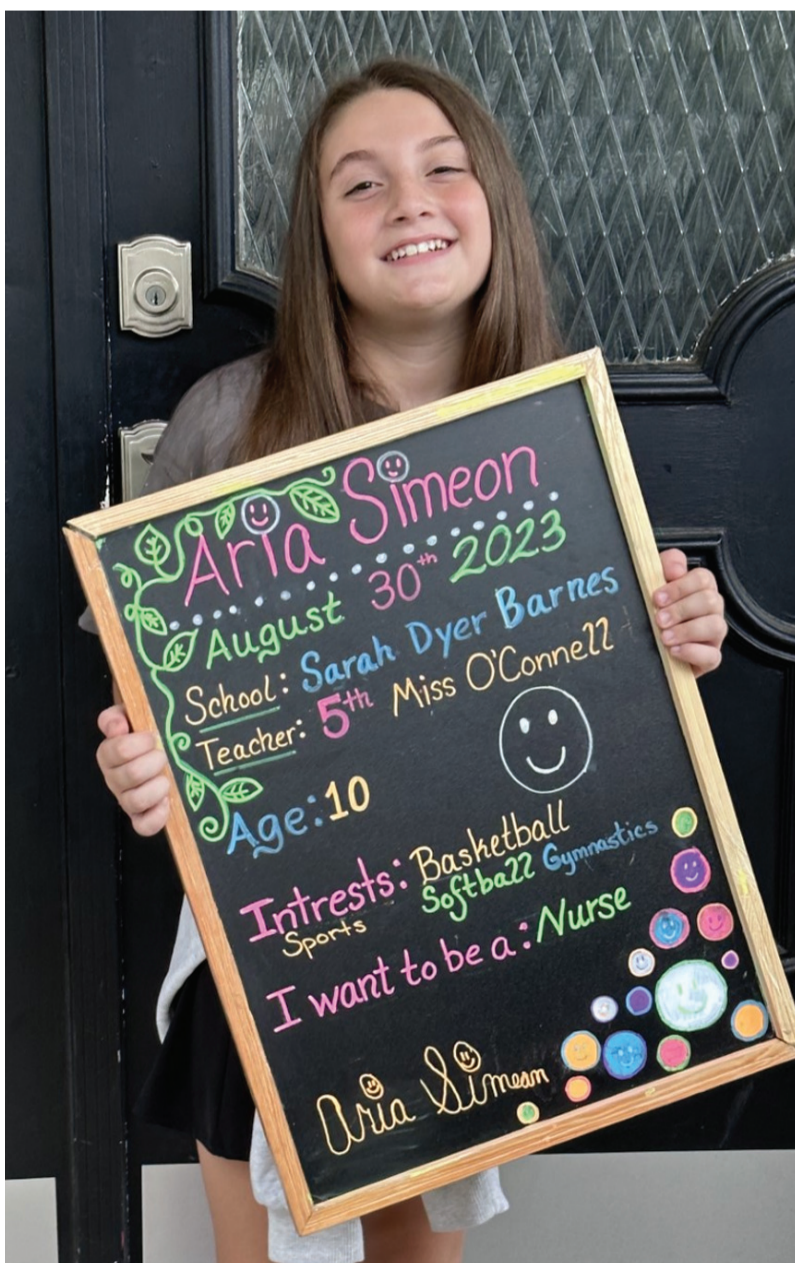 Aria Simeon
August 30th 2023
School: Sarah Dyer Barnes
Teacher: 5th Miss O'Connell
Age: 10
Intrests: Basketball
Sports Softball Gymnastics
I want to be a: Nurse
Aria Simeon